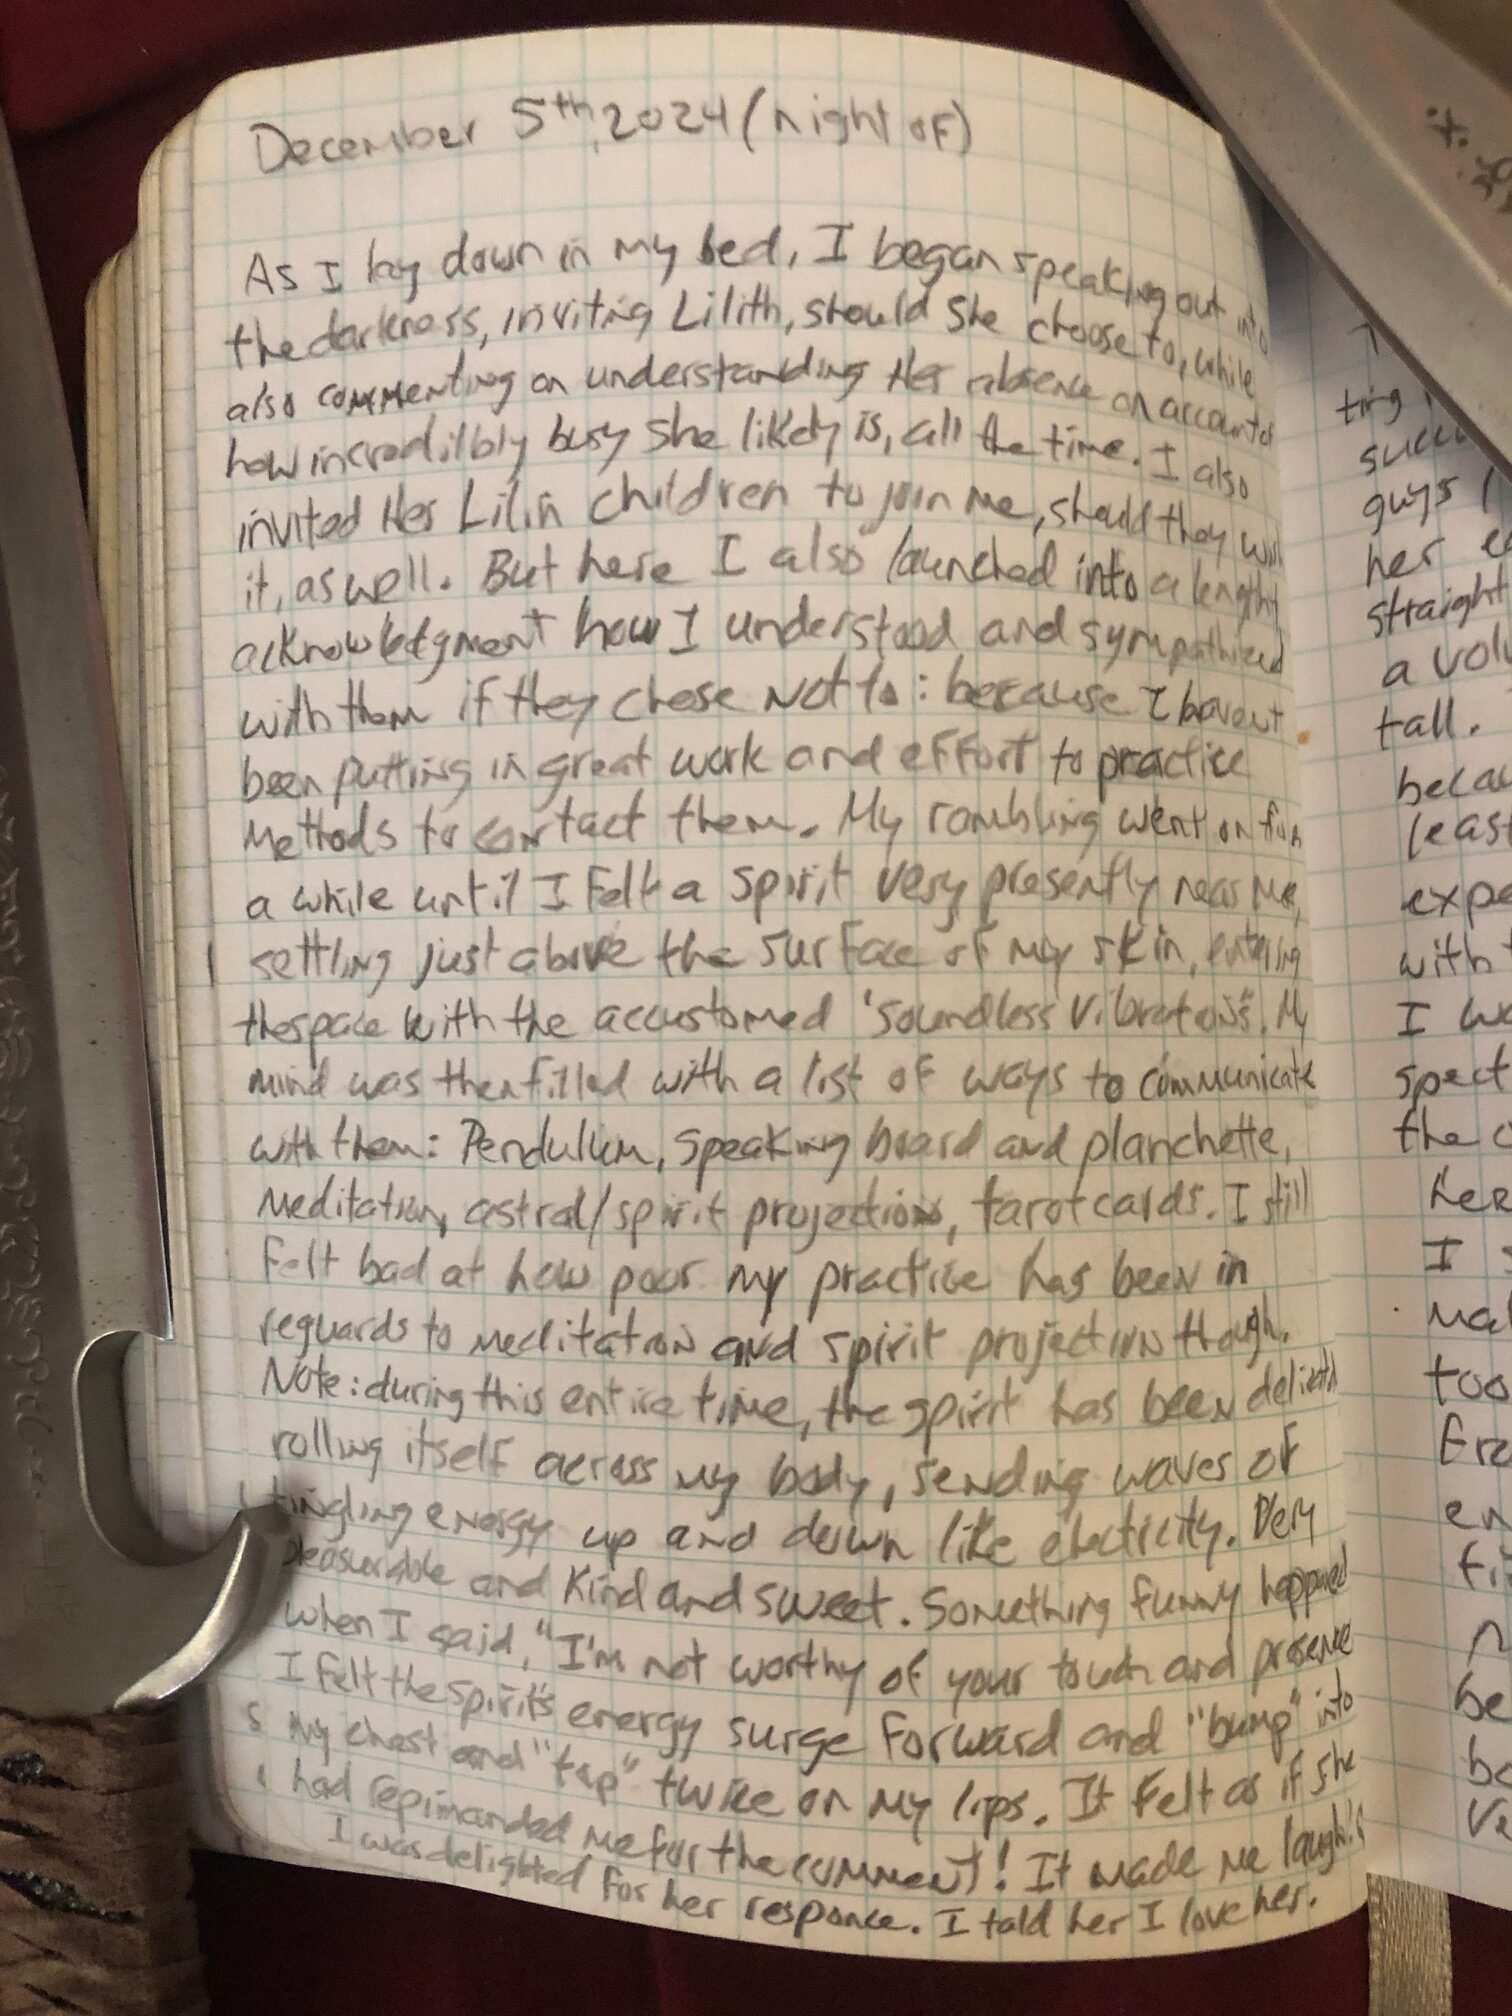 December 5th, 2024 (night of)
As I lay down in my bed, I began speaking out into
the darkness, inviting Lilith, should she choose to, while
also commenting on understanding Her absence on account of
how incredilbly busy she likely is, all the time. I also
invited Her Lilin children to join me, should they wish
it, as well. But here I also launched into a lengthy
acknowledgment how I understood and sympathized
with them if they chose not to: because I haven't
been putting in great work and effort to practice
methods to contact them. My rambling went on for
a while until I felt a spirit very presently near me,
settling just above the surface of my skin, entering
the space with the accustomed "soundless vibrations". My
mind was then filled with a list of ways to communicate
with them: Pendulum, speaking board and planchette,
meditation, astral/spirit projection, tarot cards. I still
felt bad at how poor my practice has been in
reguards to meditation and spirit projection though.
Note: during this entire time, the spirit has been
rolling itself across my body, sending waves of
tingling energy up and down like electricity. Very
pleasurable and kind and sweet. Something funny happened
when I said, "I'm not worthy of your touch and presence
I felt the spirit's energy surge forward and "bump" into
my chest and "tap" twice on my lips. It felt as if she
had repimanded me for the comment! It made me laugh!
I was delighted for her responce. I told her I love her.
ting
guys
her
straight
a
tall.
least
with
I
the
her
I
too